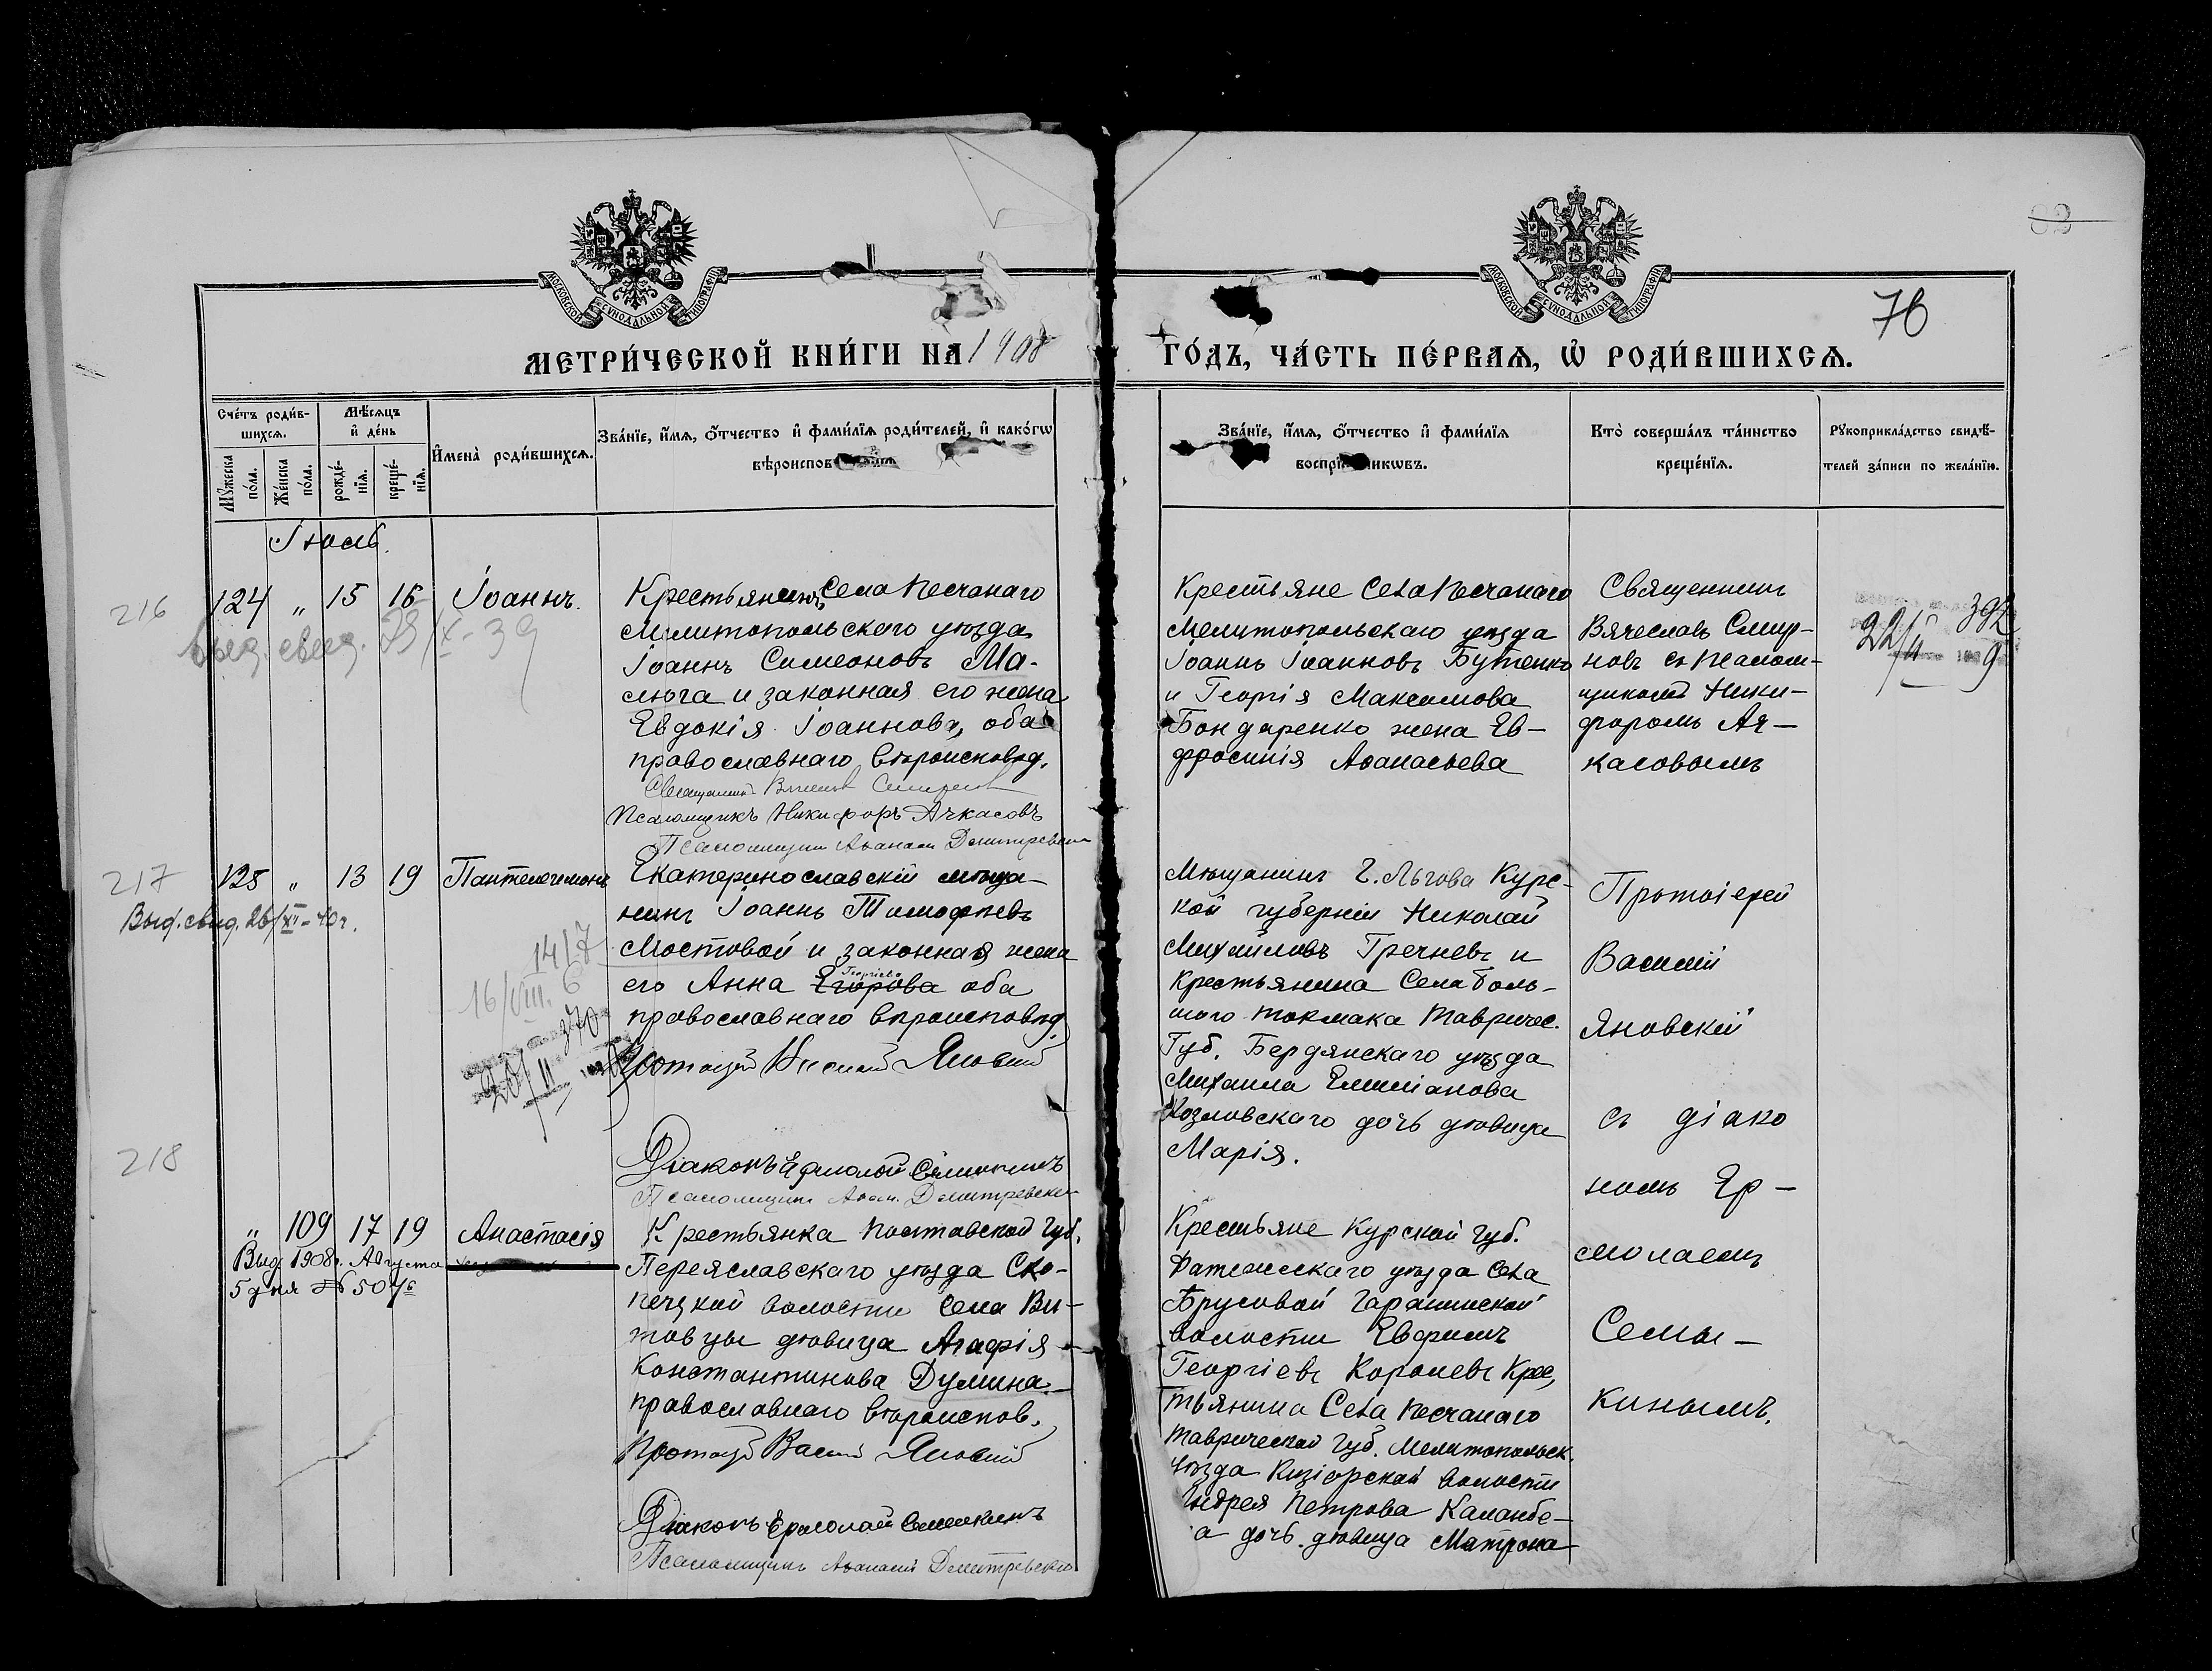 82
76
МОСКОВСКОЙ СѴНОДАЛЬНОЙ ТИПОГРАФІИ
МОСКОВСКОЙ СѴНОДАЛЬНОЙ ТИПОГРАФІИ
МЕТРИ́ЧЕСКОЙ КНИ́ГИ НА 1908
ГО́ДЪ, ЧА́СТЬ ПЕ́РВАЯ, Ѡ РОДИ́ВШИХСЯ.
Сче́тъ роди́в-
шихся.
Мѣ́сяцъ
и҆ де́нь
Мꙋ́жеска по́ла.
Же́нска по́ла.
рожде́-нїѧ.
креще́-нїѧ.
И҆мена̀ роди́вшихся.
Зва́нїе, и҆́мя, ѻ҆́тчество и҆ фами́лїя роди́телей, и҆ како́гѡ
вѣроиспов
Зва́нїе, и҆́мя, ѻ҆́тчество и҆ фами́лїя
воспрїе никѡвъ.
Кто̀ соверша́лъ та́инство
креще́нїя.
Рꙋкоприкла́дство свидѣ́-
телей за́писи по жела́нїю.
Іюль.
216
124 " 15 16 Іоаннъ.
выд. свид. IX-39
Крестьянинъ Села Песчанаго
Мелитопольскаго уѣзда
Іоаннъ Симеоновъ Ма-
слюга и законная его жена
Евдокія Іоаннова, оба
православнаго вѣроисповѣд.
Священникъ Вячеславъ Смирновъ
Псаломщикъ Никифоръ Ачкасовъ
Псаломщикъ Аѳанасій Дмитревскій
Крестьяне Села Песчанаго
Мелитопольскаго уѣзда
Іоаннъ Іоанновъ Бутенко
и Георгія Максимова
Бондаренко жена Ев-
фросинія Аѳанасьева
Священникъ
Вячеславъ Смир-
новъ съ псалом-
щикомъ Ники-
форомъ Ач-
касовымъ
392
22/II 9
217
125 " 13 19 Пантелеимонъ
Выд. свид. 26/XI-40г.
1417
16/VIII. 6
370
20/II
Екатеринославскій мѣща-
нинъ Іоаннъ Тимофѣевъ
Мостовой и законная жена
его Анна Егорова Георгіева оба
православнаго вѣроисповѣд.
Протоіерей Василій Яновскій
Діаконъ Ермолай Семыкинъ
Псаломщикъ Аѳан. Дмитревскій
Мѣщанинъ г. Льгова Курс-
кой губерніи Николай
Михайловъ Гречневъ и
крестьянина Села Боль-
шого Токмака Тавричес.
Губ. Бердянскаго уѣзда
Михаила Емиліанова
Козловскаго дочь дѣвица
Марія.
Протоіерей
Василій
Яновскій
съ діако
номъ Ер-
молаемъ
Семы-
кинымъ.
218
" 109 17 19 Анастасія
Выд. 1908г. Августа
5 дня № 507
Крестьянка Полтавской Губ.
Переяславскаго уѣзда Ско-
пецкой волости Села Ви-
товцы дѣвица Агафія
Константинова Думина
православнаго вѣроиспов.
Протоіерей Василій Яновскій
Діаконъ Ермолай Семыкинъ
Псаломщикъ Аѳанасій Дмитревскій
Крестьяне Курской Губ.
Фатежскаго уѣзда Села
Брусовой Гаранинской
волости Евфимъ
Георгіевъ Королевъ Крес-
тьянина Села Песчанаго
Таврической Губ. Мелитопольск.
уѣзда Кизіярской волости
Андрея Петрова Каланбе-
а дочь дѣвица Матрона